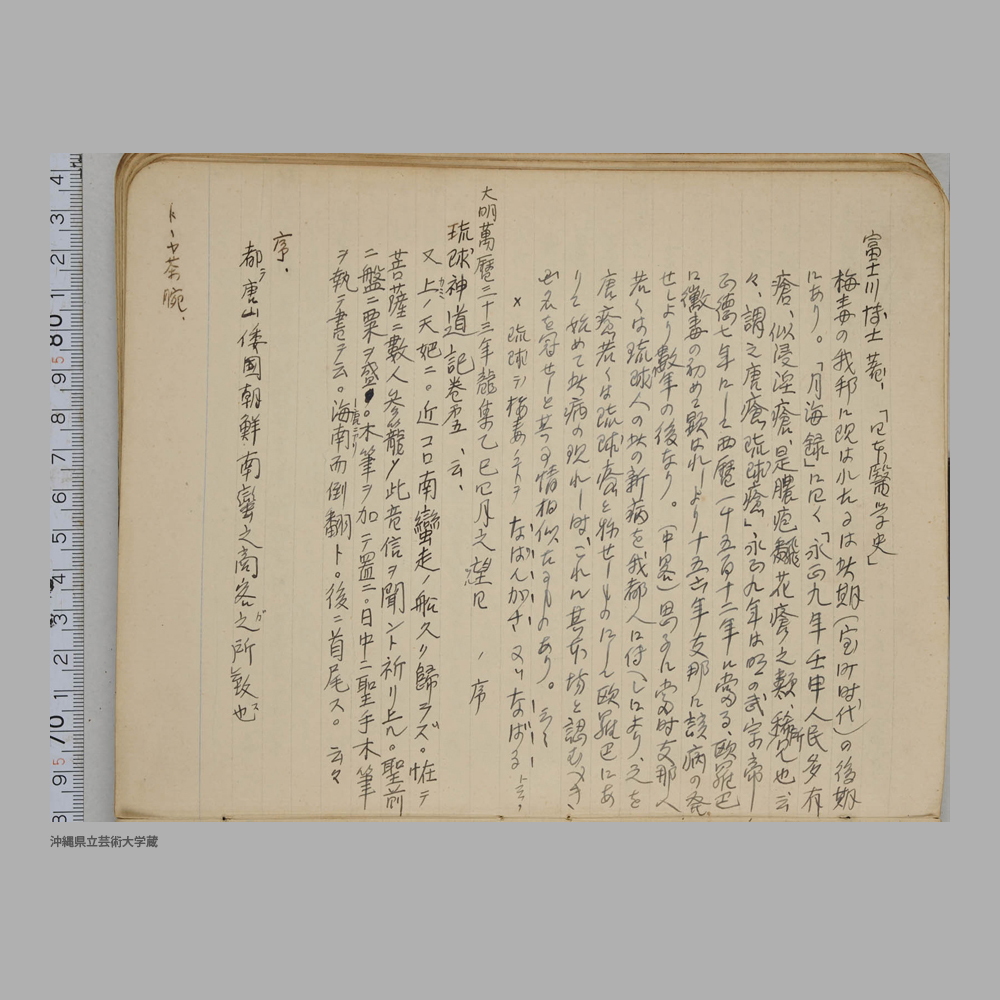 富士川博士著、「日本醫学史」
梅毒の我邦に現はれたるは此期(室町時代)の後期
にあり。「月海録」に曰く「永正九年壬申人民多有
瘡、似浸淫瘡、是膿疱翻花瘡之類、稀所見也、云
々、謂之唐瘡琉球瘡」永正九年は明の武宗帝
正德七年にして西暦一千五百十二年に當る、歐羅巴
に黴毒の初めて顕はれしより十五六年支那に該病の発
せしより數年の後なり。(中畧)思ふに當時支那人
若くは琉球人の此の新病を我都人に傳へしにより、之を
唐瘡若くは琉球瘡と称せしものにして歐羅巴にあ
りて始めて此病の現れし時、これに其本場と認むべき
地名を冠せしと其事情相似たるものあり。云々
× 琉球ラ梅毒ノヿヲ なばんがさ 又ハなばる ト云フ
大明萬曆三十三年龍集乙巳巳月之望日 ノ序
琉球神道記卷第五、云、
又上ノ天妃ニ。近コロ南蠻走ノ船久ク歸ラズ。恠テ
菩薩ニ數人參籠ノ此音信ヲ聞ント祈リ上ル。聖前
ニ盤ニ粟ヲ盛。木筆ヲ加テ置ニ。日中ニ聖手木筆
ヲ執テ書テ云。海南而倒翻ト。後ニ首尾ス。云々
序、
都テ唐山倭國朝鮮南蛮之商客之所致也
トーヤ茶腕、
4 3 2 1 80 9 8 7 6 5 4 3 2 1 70 9 8
沖縄県立芸術大学蔵